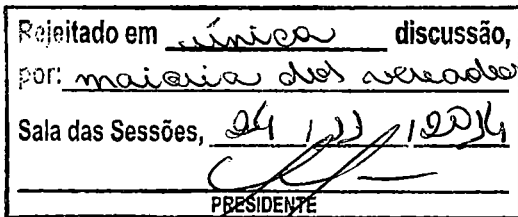 Rejeitado em única discussão,
por: maioria dos vereador
Sala das Sessões, 24 / 11 / 2014
PRESIDENTE